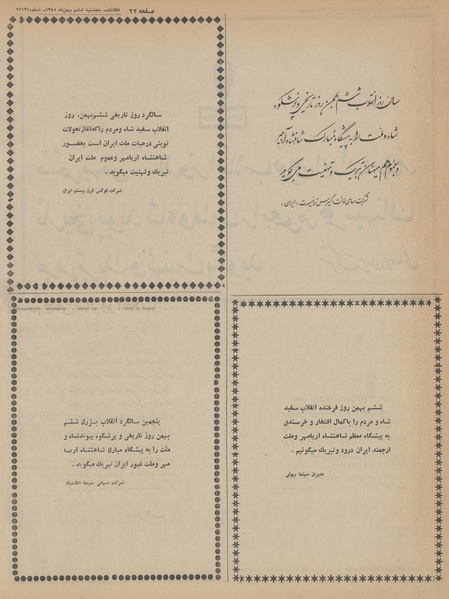 صفحه ۲۲
اطلاعات - پنجشنبه ششم بهمن ماه ۱۳۴۵ - شماره ۱۲۱۹۱
سالگرد روز تاریخی ششم بهمن، روز
انقلاب سفید شاه ومردم راکه آغاز تحولات
نوینی درحیات ملت ایران است بحضور
شاهنشاه آریامهر وعموم ملت ایران
تبریك وتهنیت میگوید.
شرکت فوکس قرن بیستم ایران
سالروز انقلاب ششم بهمن روز تاریخی و پرشکوه
شاه و ملت را به پیشگاه مبارک شاهنشاه آریامهر
و عموم هم میهنان عزیز تبریک و تهنیت می گوییم
(ایران)
پنجمین سالگرد انقلاب بزرگ ششم
بهمن روز تاریخی و پرشکوه پیوند شاه و
ملت را به پیشگاه مبارك شاهنشاه آریا
مهر وملت غیور ایران تبریك میگوید.
شرکت سهامی سینما
ششم بهمن روز فرخنده انقلاب سفید
شاه و مردم را باکمال افتخار و خرسندی
به پیشگاه معظم شاهنشاه آریامهر وملت
ارجمند ایران درود وتبریك میگوئیم.
مدیران سینما ریولی